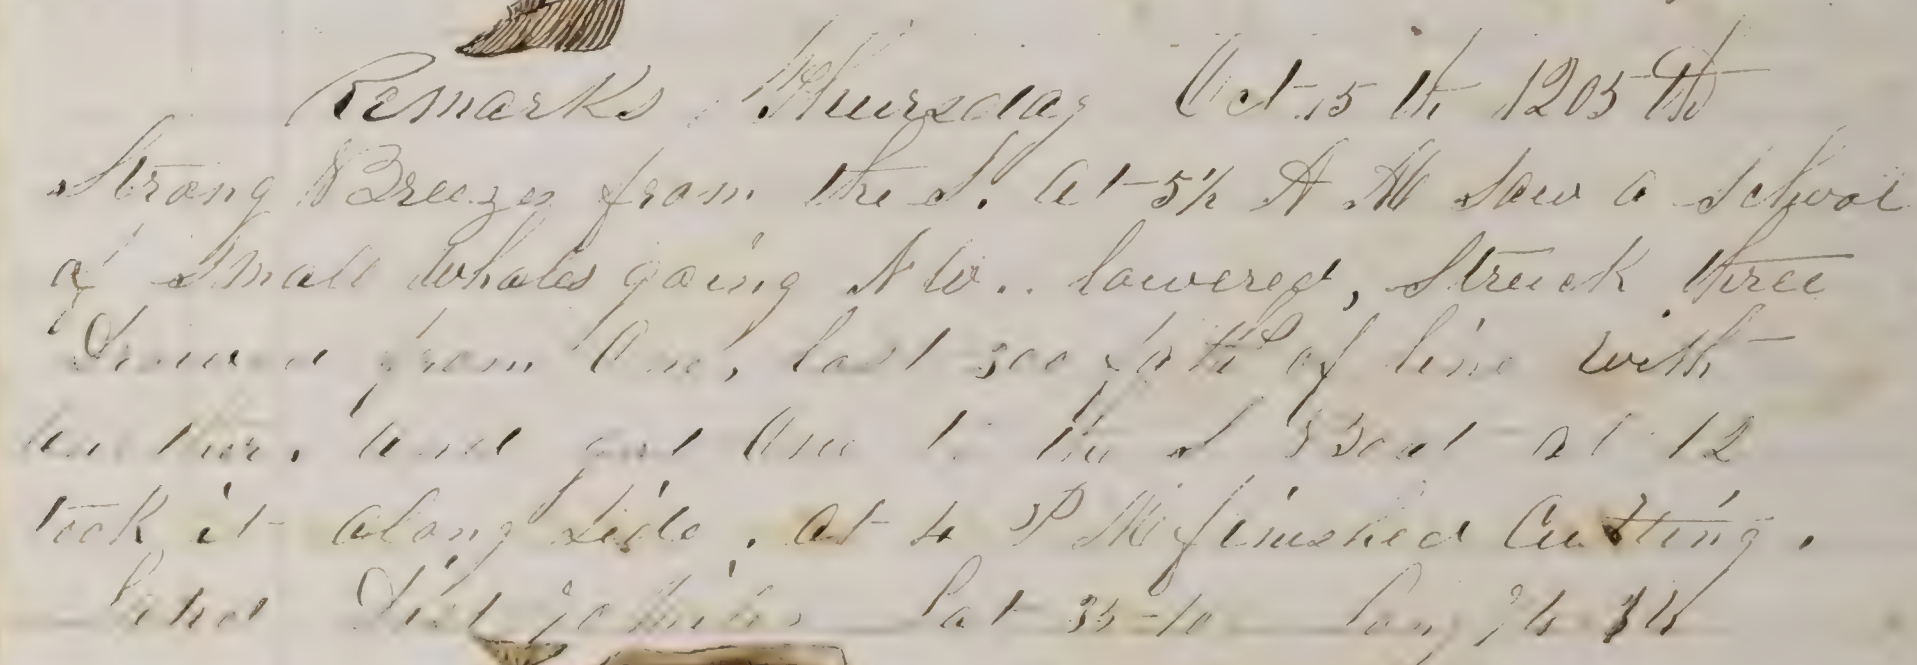 Remarks Thursday Oct 15th 1205th
Strong Breezes from the S. at 5½ A M Saw a School
of Small Whales going N W.. lowered, Struck three
Drawed from One, lost 300 faths of line with
another, and got One to the S Boat at 12
took it along Side, at 4 P M finished Cutting.
Land Dist 70 Miles Lat 35-10 Long